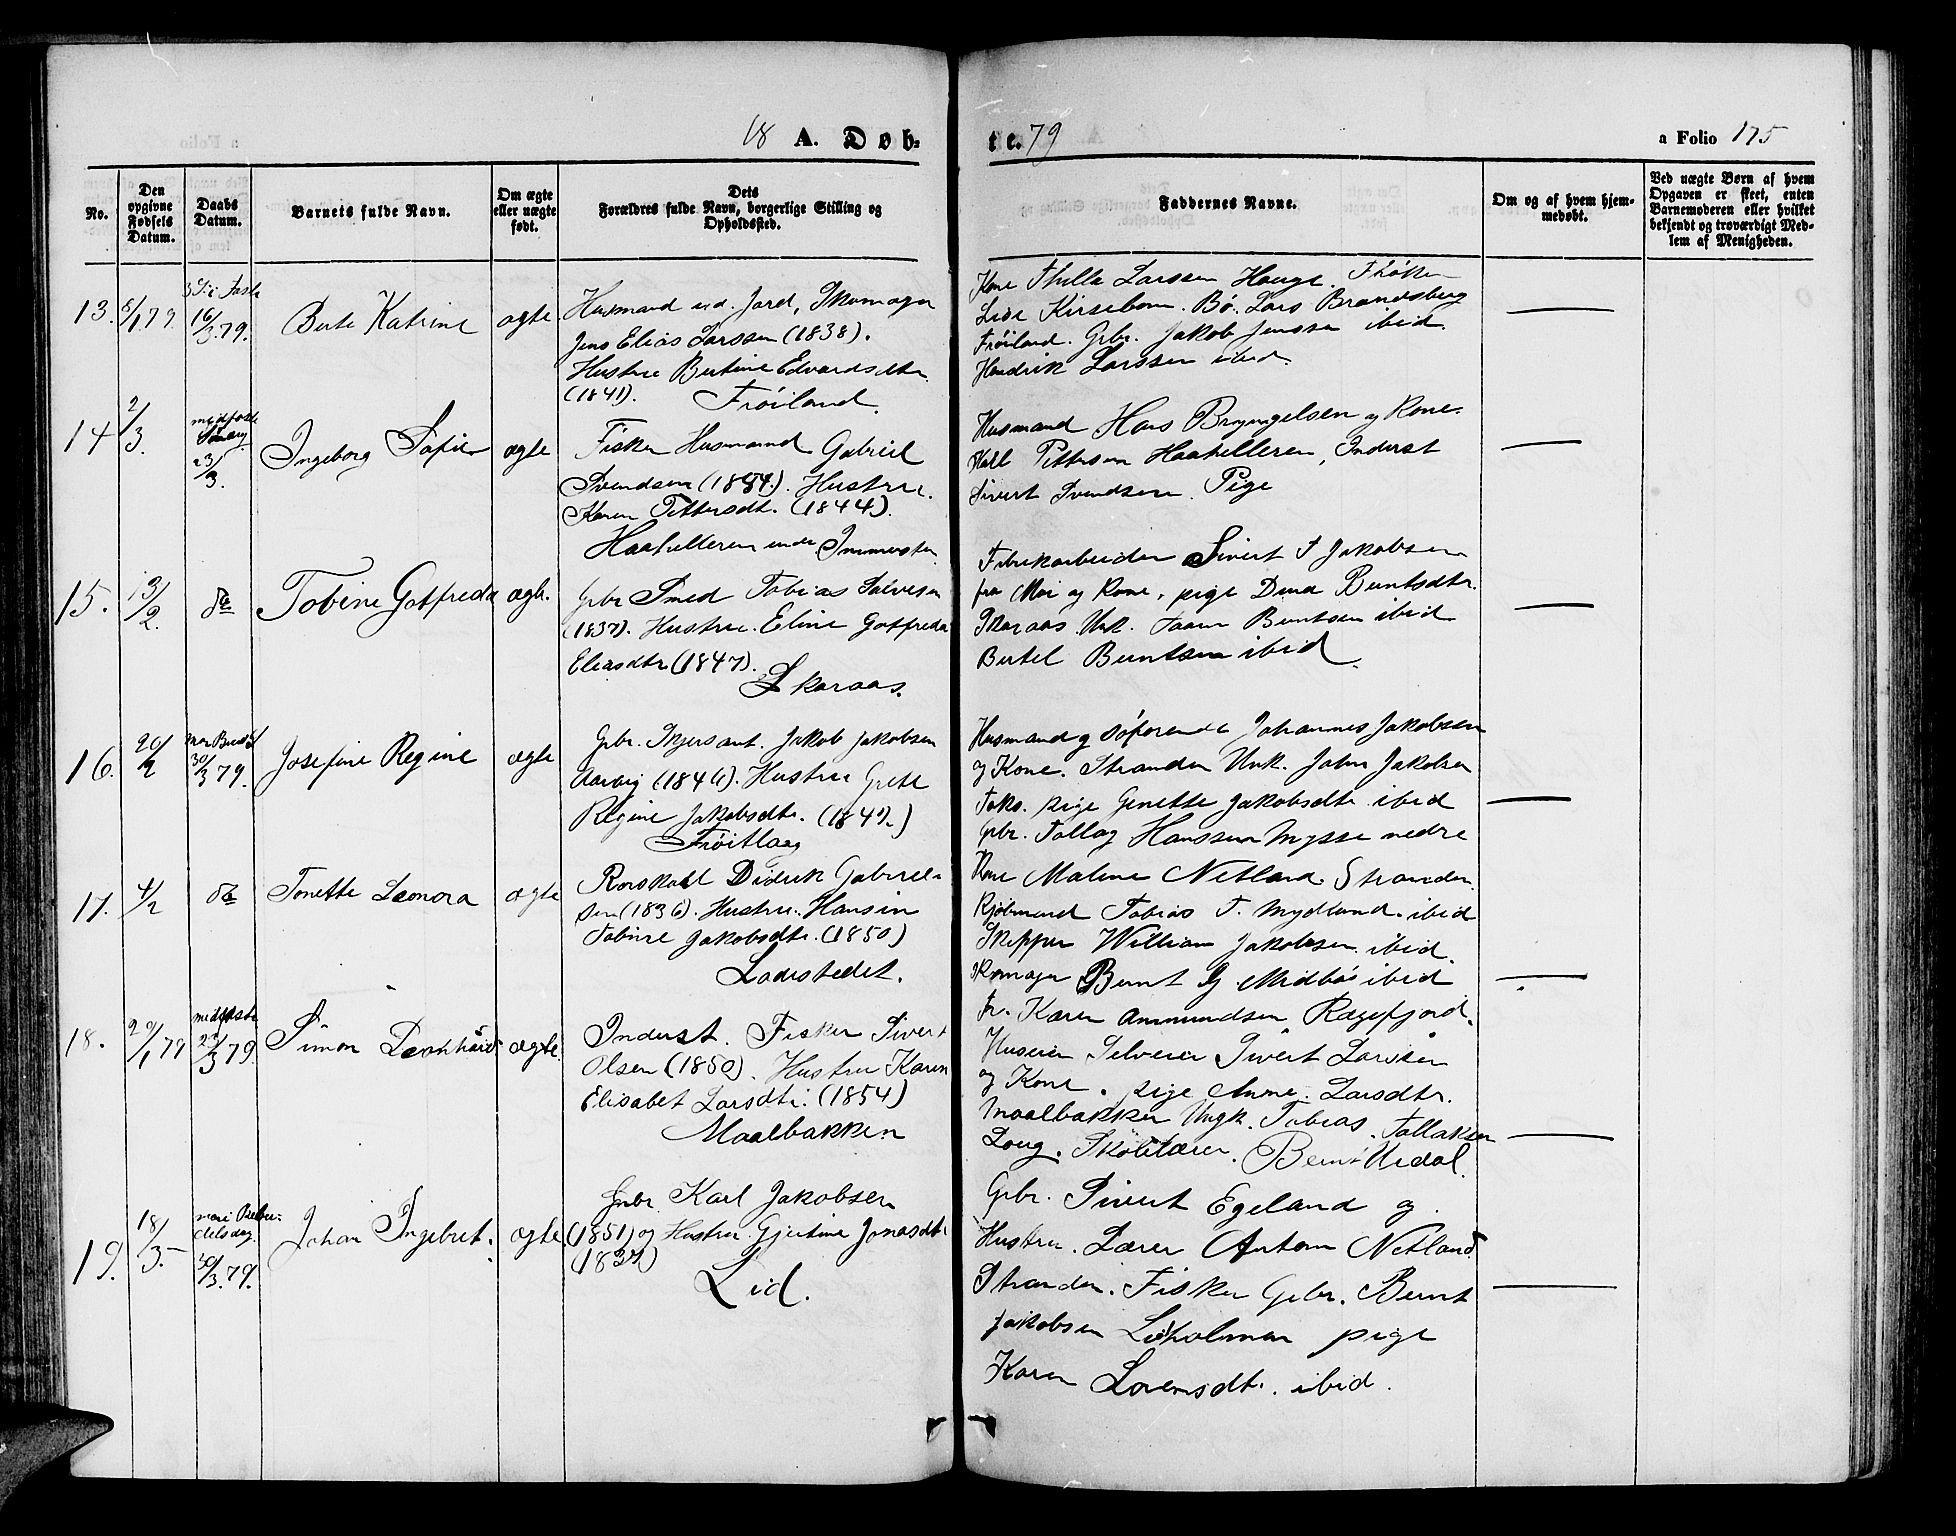 18 A. Døb-
te. 79
a Folio 175
No.
Den opgivne Fødsels Datum.
Daabs Datum.
Barnets fulde Navn.
Om ægte eller uægte født.
Dets Forældres fulde Navn, borgerlige Stilling og Opholdssted.
Faddernes Navne.
Om og af hvem hjemmedøbt.
Ved uægte Børn af hvem Opgaven er skeet, enten Barnemoderen eller hvilket bekjendt og troværdigt Medlem af Menigheden.
13. 8/1 79. 3 S. i Faste 16/3 79. Berte Katrine ægte
Husmand ud. Jord, Skomager
Jens Elias Larssen (1838).
Hustru Bertine Edvardsdtr.
(1841). Frøiland.
Kone Thilla Larssen Hauge. Frøken
Lise Kirsebom. Bø. Lars Brandsberg
Frøiland. Grbr. Jakob Jenssen ibid.
Hendrik Larssen ibid.
14 2/3. midfaste Søndag 23/3. Ingeborg Sofie ægte
Fisker Husmand Gabriel
Svendsen. Hustru.
Karen Pettersdt. (1844).
Haahelleren Indersten
Husmand Hans Bryngelsen og Kone.
Karl Pettersen Haahelleren, Inderst
Sivert Svendsen. Pige
15. 13/2. do Tobine Gotfreda ægte.
Grbr Smed Tobias Salvesen
(1837). Hustru. Eline Gotfreda
Eliasdtr (1847).
Skaraas.
Fabrikarbeider Sivert T Jakobsen
fra Moi og Kone, pige Berntsdtr.
Skaraas. Unk. Berntsen ibid
Bertel Berntsen ibid.
16. 20/2 mar Bud 30/3 79. Josefine Regine ægte
Grbr. Skjersant. Jakob Jakobsen
Aarvig (1846). Hustru Grete
Regine Jakobsdtr.
Frøitlaag
Husmand og søfarende Johannes Jakobsen
og Kone. Stranden Unk. John Jakobsen
pige Genette Jakobsdtr ibid
Grbr. Tallag Hanssen Mysse nedre
17. 4/2 do Tonette Leonora ægte
Rorskarl Didrik Gabriel-
sen (1836). Hustru. Hansin
Tobine Jakobsdtr. (1850)
Ladestedet.
Kone Malene Netland. Stranden.
Kjøbmand Tobias T. Mydland. ibid
Skipper William Jakobsen. ibid.
Skomager Bernt G Midbøs ibid
Fr. Karen Ammundsen Rægefjord.
18. 29/1 79 midfaste 23/3 79. Simon Leonhard ægte.
Inderst. Fisker Sivert
Olsen (1850). Hustru Karen
Elisabet Larsdtr. (1854)
Maalbakken
Huseier Selveier Sivert Larsen
og Kone. pige Anne. Larsdtr.
Maalbakken Ungk. Tobias. Tallaksen
Skolelærer. Bernt Urdal.
19. 18/3 mari Bebudelsdag 30/3.79. Johan Ingebret. ægte
Grbr Karl Jakobsen
(1851) og Hustru Gjertine Jonasdtr
Lid.
Grbr. Sivert Egeland og
Hustru. Lærer Anton Netland
Stranden. Fisker Grbr. Bernt
Jakobsen Lidholmen pige
Karen Lorensdt. ibid.